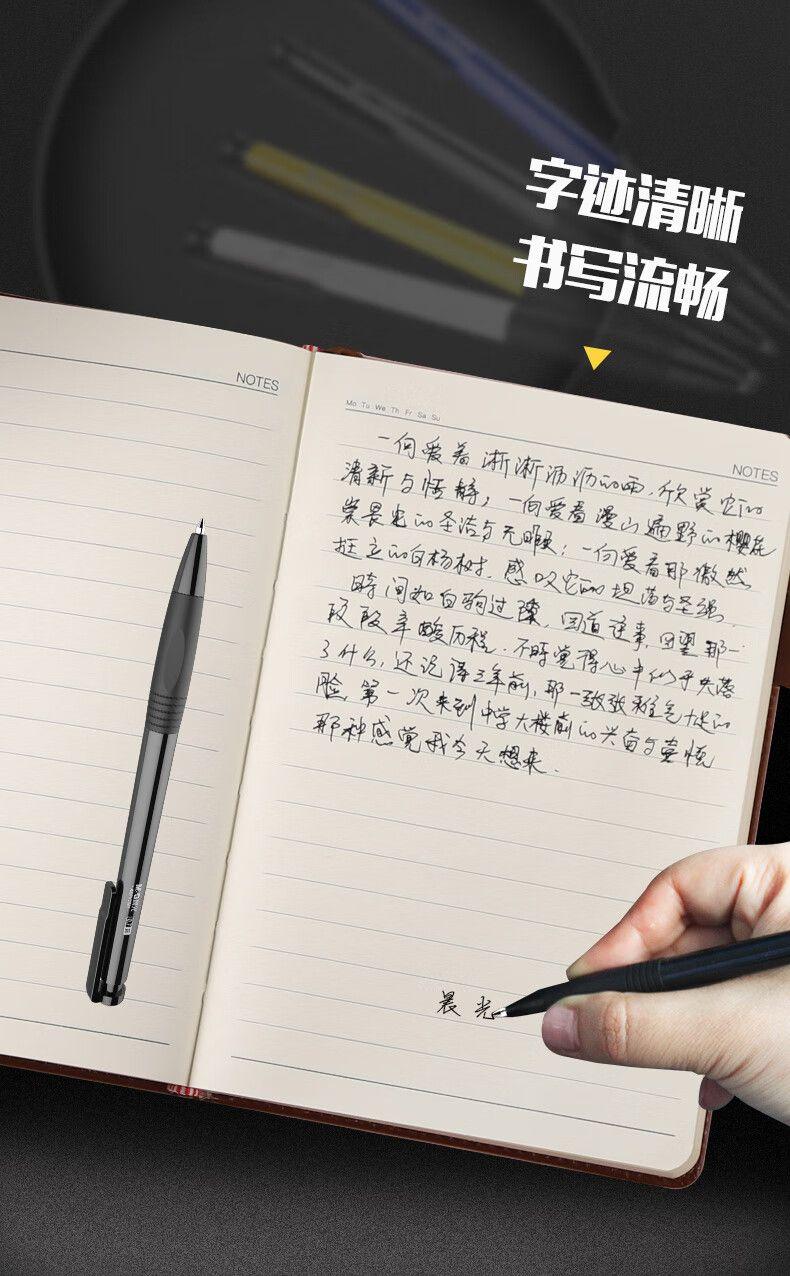 字迹清晰
书写流畅
NOTES
Mo Tu We Th Fr Sa Su
NOTES
一向爱着淅淅沥沥的雨,欣赏它的
清新与恬静;一向爱着漫山遍野的樱花
崇畏它的圣洁与无暇;一向爱着那傲然
挺立的白杨树,感叹它的坦荡与坚强.
时间如白驹过隙,回道往事,回望那一
段段辛酸历程.不时觉得心中似乎失落
了什么,还记得三年前,那一张张稚气十足的
脸,第一次来到中学大楼前的兴奋与喜悦
那种感觉我今天想来.
晨光